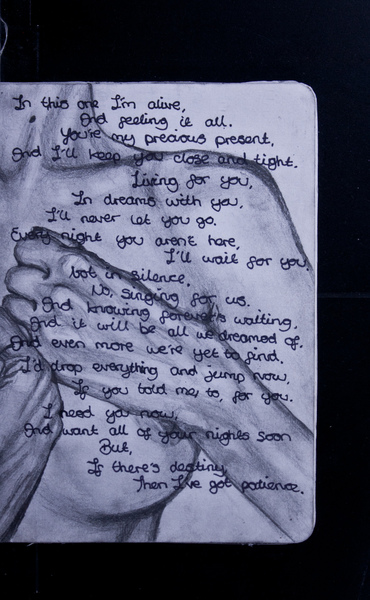 In this one I'm alive,
And feeling it all.
You're my precious present,
And I'll keep you close and tight.
Living for you,
In dreams with you,
I'll never let you go.
Every night you aren't here,
I'll wait for you.
but in silence.
No, singing for us.
And knowing forever's waiting,
And it will be all we dreamed of.
And even more we're yet to find.
I'd drop everything and jump now,
If you told me to, for you.
I need you now,
And want all of your nights soon
But,
If there's destiny,
Then I've got patience.